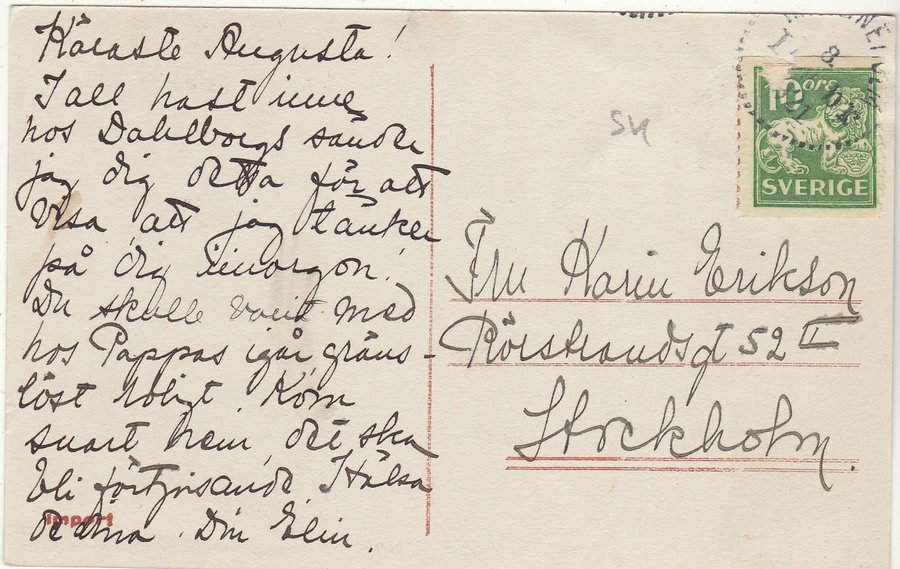 Käraste Augusta!
I all hast inne
hos Dahlborgs sände
jag dig detta för att
visa, att jag tänker
på dig imorgon!
Du skulle varit med
hos Pappas igår, gräns-
löst roligt. Kom
snart hem, det ska
bli förtjusande. Hälsa
Din Elin.
import
SK
10 öre
SVERIGE
8.
Fru Karin Erikson
Rörstrandsgt 52 II
Stockholm.